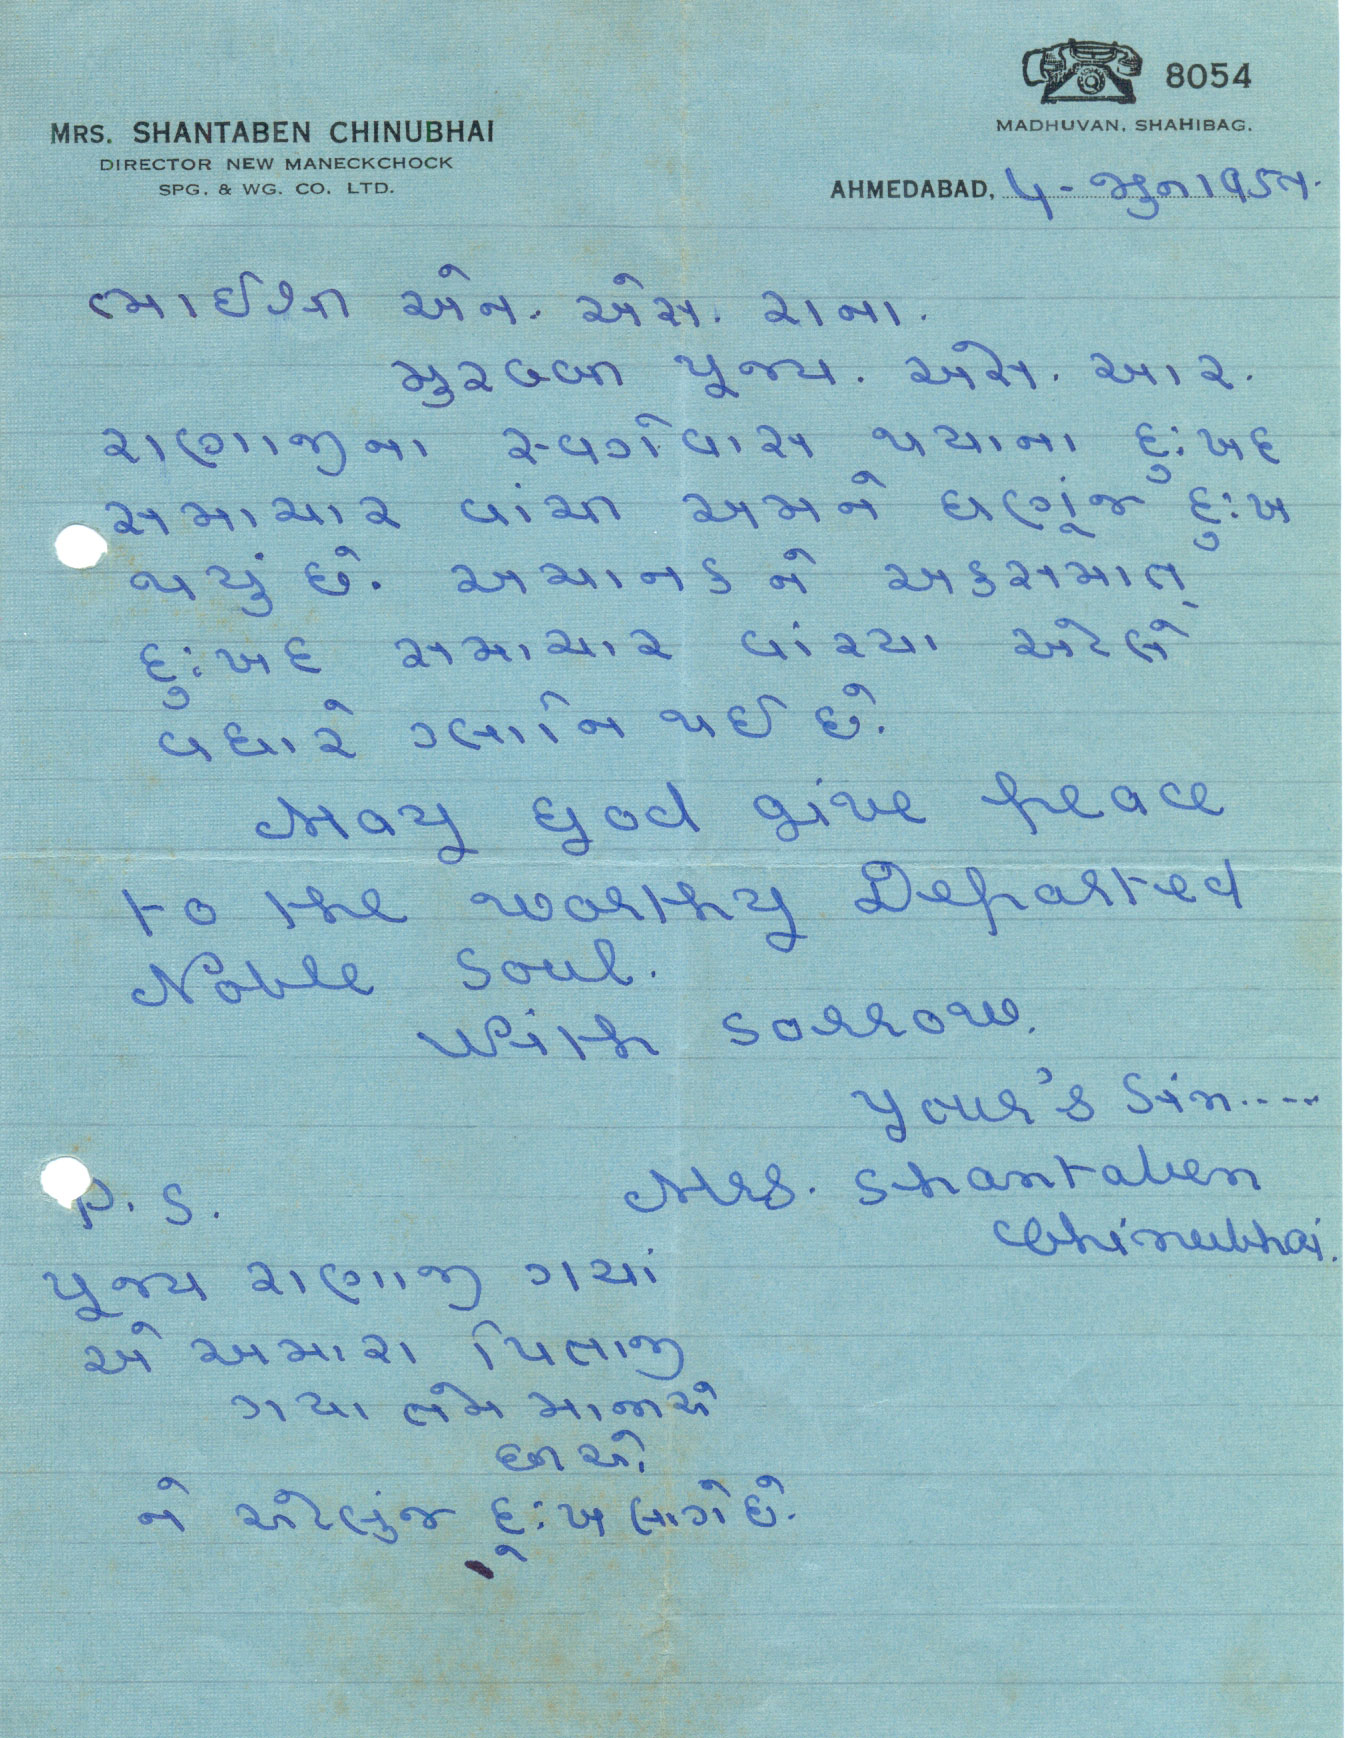 8054
MADHUVAN, SHAHIBAG.
MRS. SHANTABEN CHINUBHAI
DIRECTOR NEW MANECKCHOCK
SPG. & WG. CO. LTD.
AHMEDABAD, ૫ - જુન
ભાઈશ્રી એન. એસ. રાના.
મુરબ્બી પૂજ્ય. એસ. આર.
રાણાજીના સ્વર્ગવાસ થયાના દુ:ખદ
સમાચાર વાંચી અમને ઘણૂંજ દુ:ખ
થયું છે. અચાનક ને અકસમાત્
દુ:ખદ સમાચાર વાંચ્યા એટલે
વધારે ગ્લાનિ થઈ છે.
May God give peace
to the worthy Departed
Noble soul.
With sorrow.
Your's Sin....
Mrs. Shantaben
Chinubhai.
P. S.
પૂજ્ય રાણાજી ગયાં
એ અમારા પિતાજી
ગયા તેમ માનીએ
છીએ.
ને એટલુંજ દુ:ખ લાગે છે.